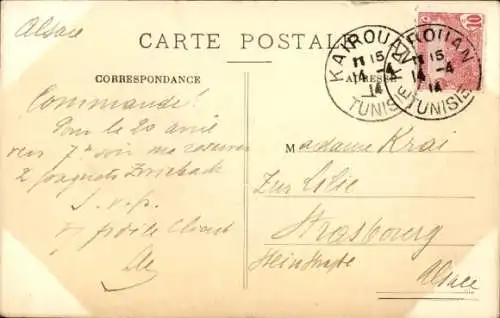 Alsace
CARTE POSTALE
CORRESPONDANCE
ADRESSE
KAIROUAN
11 15
14 -4
14
TUNISIE
KAIROUAN
11 15
14 -4
14
TUNISIE
10
Commande!
Pour le 20 avril
vers 7h soir me reserver
2 paquets Zwieback
S. v. p.
fidèle Client
Madame Krai
Zur Lilie
Strasbourg
Steinstraße
Alsace